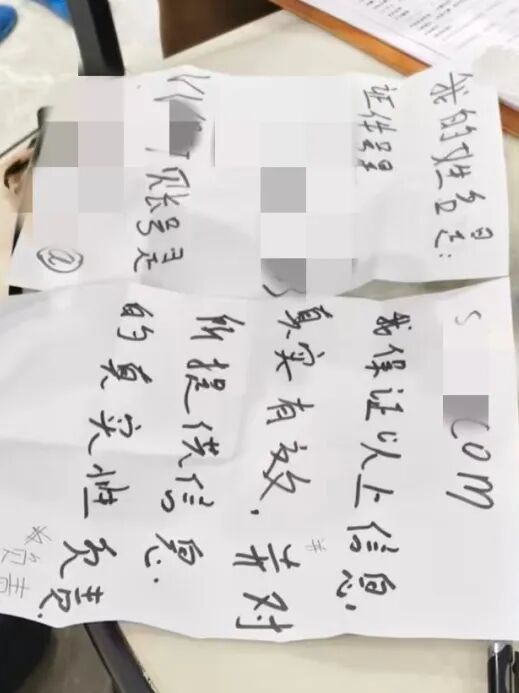 我的姓名是:
证件号是
账号是
@
s
com
我保证以上信息,
真实有效,并对
所提供信息.
的真实性负责.
并
负责